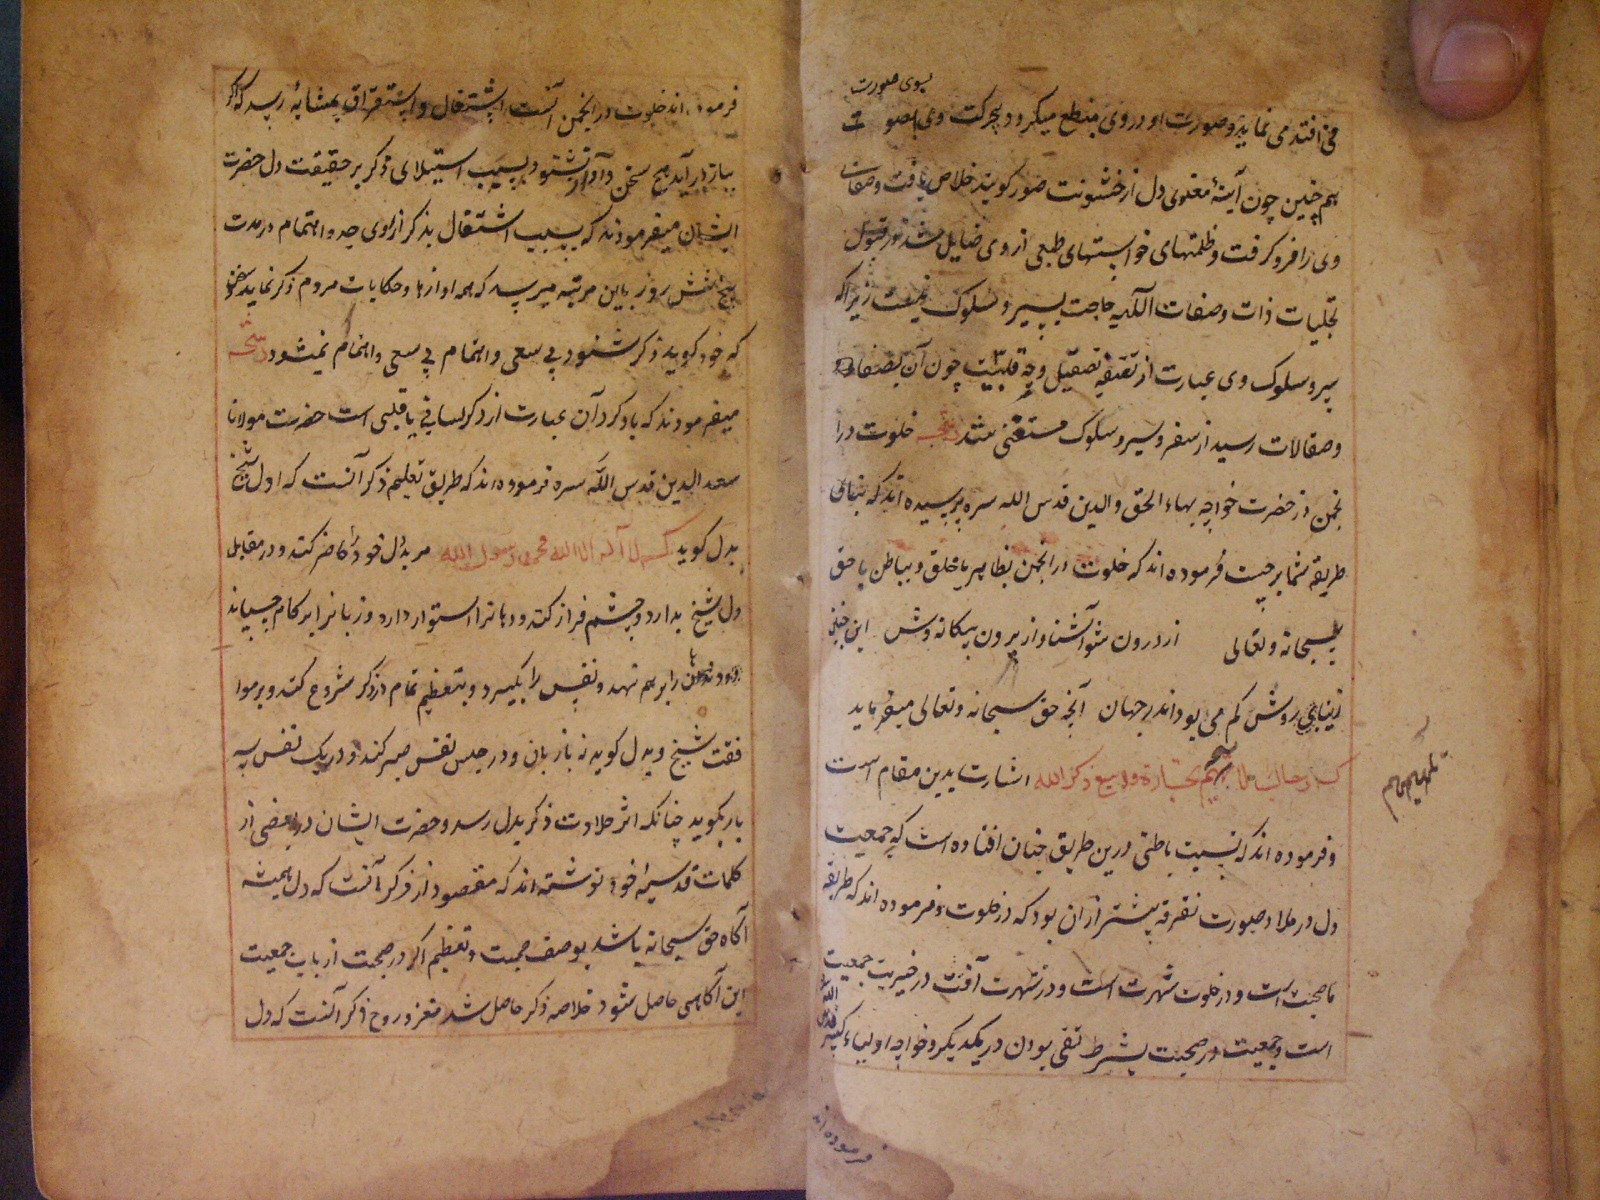 بسوی صورت
می افتد می نماید و صورت او در وی منطبع میگردد و بحرکت وی بصورت
همچنین چون آینهٔ معنوی دل از خشونت صور کونیه خلاص یافت و صفات
وی را فرو گرفت و ظلمتهای خواستهای طبعی از وی زایل شد نور قبول
تجلیات ذات و صفات الٰهیه حاجت بسیر و سلوک نیست زیرا که
سیر و سلوک وی عبارت از تصقیل وجه قلبیست چون آن بصفا
و صقالات رسید از سفر و سیر و سلوک مستغنی شد رشحه خلوت در ا
نجمن از حضرت خواجه بهاء الحق و الدین قدس الله سره پرسیده اند که بنای
طریقه شما بر چیست فرموده اند که خلوت در انجمن بظاهر با خلق و بباطن با حق
سبحانه و تعالی از درون شو آشنا و از بیرون بیگانه وش این چنین
زیبا روش کم می بود اندر جهان آنچه حق سبحانه و تعالی میفرماید
که رجال لا تلهیهم تجارة ولا بیع عن ذکر الله اشارت بدین مقام است
تلهیهم
و فرموده اند که نسبت باطنی درین طریق چنان افتاده است که جمعیت
دل در ملا و صورت تفرقه بیشتر از ان بود که در خلوت و فرموده اند که طریقه
ما صحبت است و در خلوت شهرت است و در شهرت آفت و خیریت در جمعیت
است و جمعیت در صحبت بشرط نفی بودن در یکدیگر و خواجه اولیاء کبیر
قدس الله
فرموده اند
فرموده اند خلوت در انجمن آنست اشتغال و استغراق بمثابهٔ رسد که اگر
ببازار در آید هیچ سخن و آواز نشنود بسبب استیلای ذکر بر حقیقت دل حضرت
ایشان میفرمودند که بسبب اشتغال بذکر از روی جد و اهتمام در مدت
پنج شش روز باین مرتبه میرسد که همه اوازها و حکایات مردم ذکر نماید و سخن
که خود گوید ذکر شنود بی سعی و اهتمام بی سعی و اهتمام نمیشود رشحه
میفرمودند که یاد کرد آن عبارت از ذکر لسانی یا قلبی است حضرت مولانا
سعد الدین قدس الله سره فرموده اند که طریق تعلیم ذکر آنست که اول شیخ
بدل گوید که لا اله الا الله محمد رسول الله مرید دل خود را حاضر کند و در مقابل
دل شیخ بدارد و چشم فراز کند و دهانرا استوار دارد و زبانرا بر کام چسپاند
و دندان را بر هم نهد و نفس را بگیرد و بتعظیم تمام در ذکر شروع کند و بر موا
فقت شیخ و بدل گوید نه بزبان و در حبس نفس صبر کند و در یک نفس سه
بار بگوید چنانکه اثر حلاوت ذکر بدل رسد و حضرت ایشان در بعضی از
کلمات قدسیهٔ خود نوشته اند که مقصود از ذکر آنست که دل همیشه
آگاه حق سبحانه باشد بوصف محبت و تعظیم اگر در صحبت ارباب جمعیت
این آگاهی حاصل شود خلاصه ذکر حاصل شد مغز و روح ذکر آنست که دل